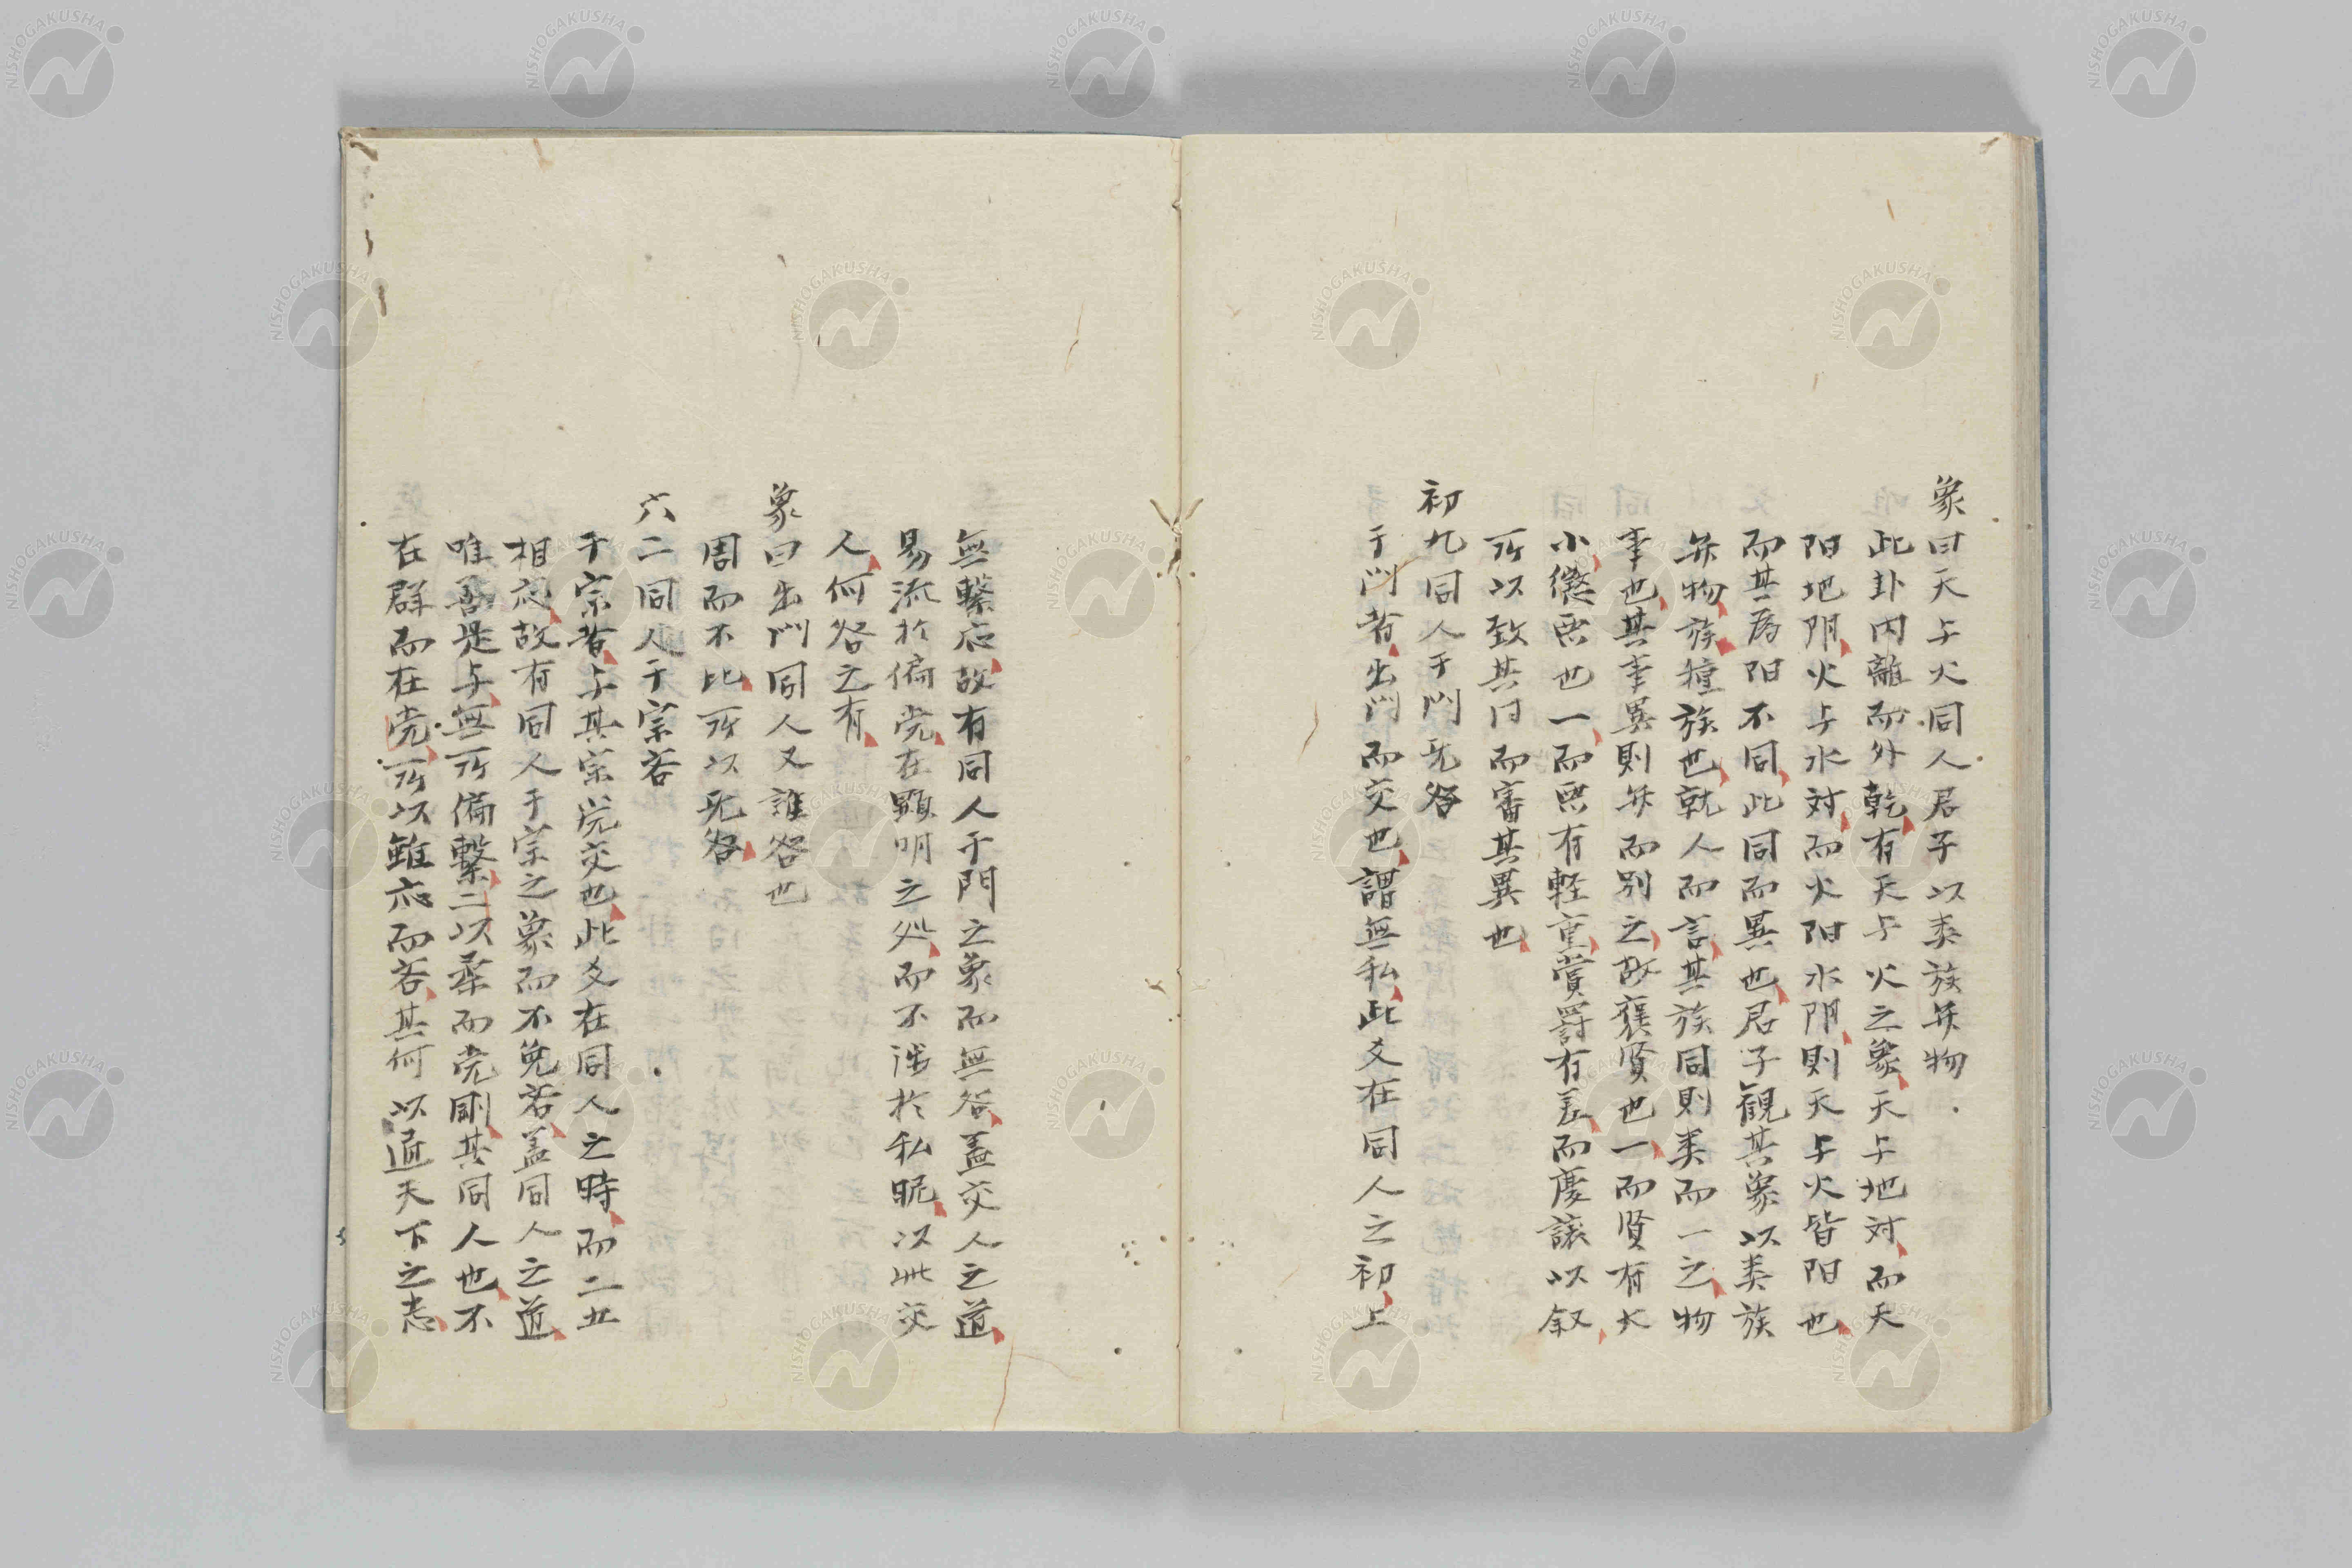 象曰天与火同人君子以类族弁物
此卦内離而外乾有天与火之象天与地対而天
阳地阴火与水対而火阳水阴則天与火皆阳也
而其為阳不同此同而異也君子観其象以类族
弁物族種族也就人而言其族同則类而一之物
事也其事異則弁而別之故褒贤也一而贤有大
小懲悪也一而悪有軽重賞罰有差而慶譲以叙
所以致其同而審其異也
初九同人于门无咎
于门者出门而交也謂無私此爻在同人之初上
無繋応故有同人于門之象而無咎盖交人之道
易流於偏党在顕明之処而不渉於私昵以此交
人何咎之有
象曰出门同人又誰咎也
周而不比所以无咎
六二同人于宗吝
于宗者与其宗党交也此爻在同人之時而二五
相応故有同人于宗之象而不免吝盖同人之道
唯善是与無所偏繋二以柔而党剛其同人也不
在群而在党所以雖応而吝其何以通天下之志
NISHOGAKUSHA